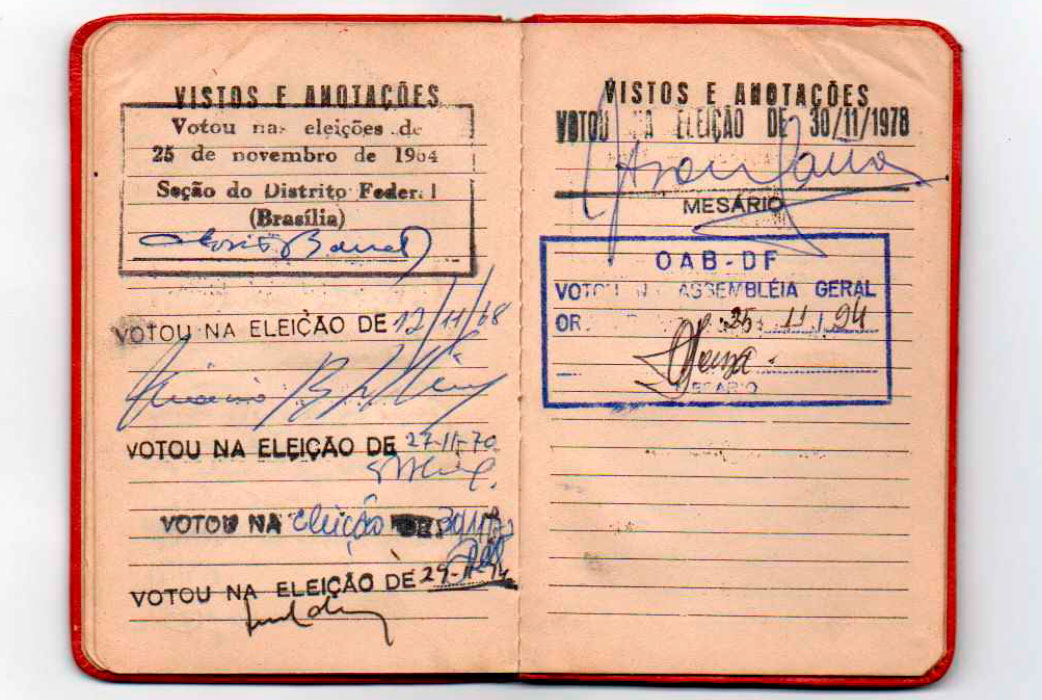 VISTOS E ANOTAÇÕES
Votou nas eleições de
25 de novembro de 1964
Seção do Distrito Federal
(Brasília)
VOTOU NA ELEIÇÃO DE 12/11/68
VOTOU NA ELEIÇÃO DE 27-11-70
VOTOU NA eleição
VOTOU NA ELEIÇÃO DE 29-11-
VISTOS E ANOTAÇÕES
VOTOU NA ELEIÇÃO DE 30/11/1978
MESÁRIO
OAB-DF
VOTOU ASSEMBLÉIA GERAL
OR. 25 11 94